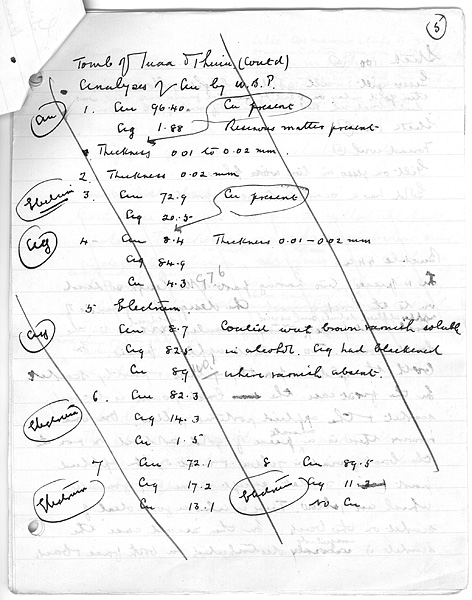 5
Tomb of Iuaa & Thuiu (Contd)
Analyses of Au by W.B.P.
Au 1. Au 96.40 Cu present
Ag 1.88 Resinous matter present
Thickness 0.01 to 0.02 mm.
2. Thickness 0.02 mm
Electrum 3. Au 72.9 Cu present
Ag 20.5
Ag 4 Au 8.4 Thickness 0.01-0.02 mm
Ag 84.9
Cu 4.3
5 Electrum.
Ag Au 8.7 Coated with brown varnish soluble
Ag 82.5 in alcohol. Ag had blackened
Cu where varnish absent.
6. Au 82.3
Electrum Ag 14.3
Cu 1.5
7 Au 72.1 8 Au 89.5
Electrum Ag 17.2 Electrum Ag 11.2
Cu 13.1 No Cu